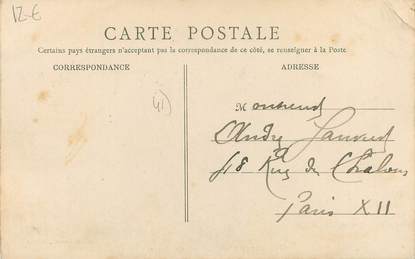 12-€
CARTE POSTALE
Certains pays étrangers n'acceptant pas la correspondance de ce côté, se renseigner à la Poste.
CORRESPONDANCE
ADRESSE
41)
André
48 Rue de
Paris XII